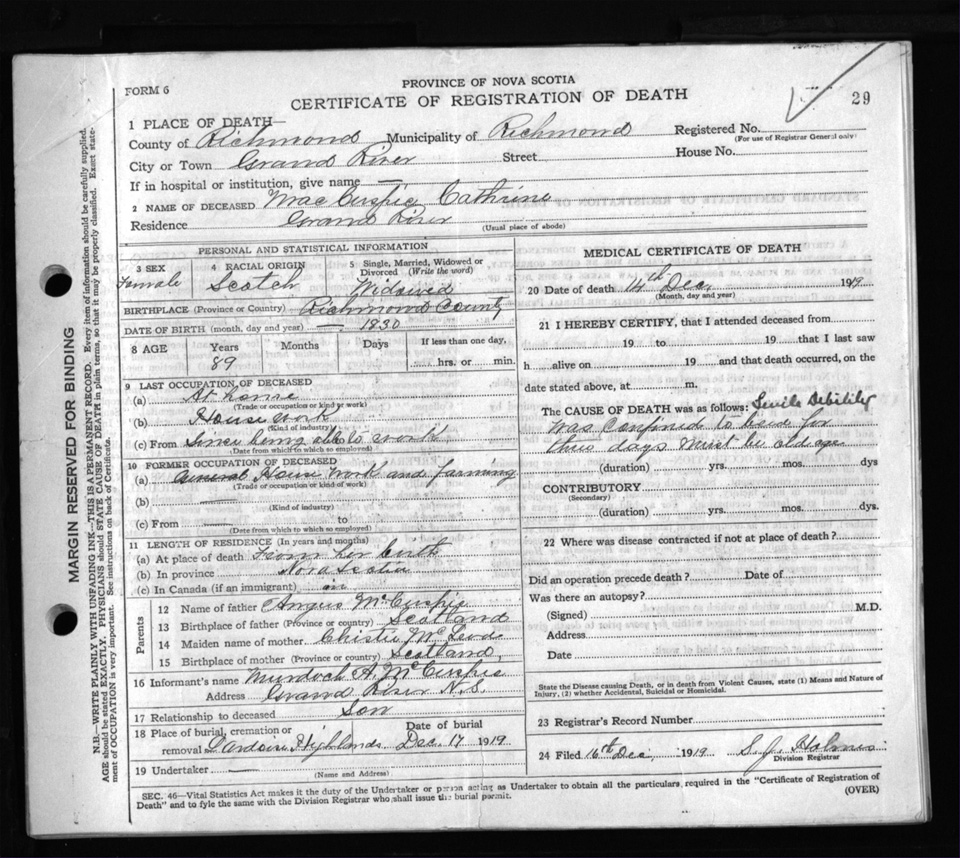 FORM 6
PROVINCE OF NOVA SCOTIA
CERTIFICATE OF REGISTRATION OF DEATH
29
1 PLACE OF DEATH—
County of Richmond Municipality of Richmond Registered No.
(For use of Registrar General only)
City or Town Grand River Street House No.
If in hospital or institution, give name —
2 NAME OF DECEASED Mac Cuspic, Cathrine
Residence Grand River
(Usual place of abode)
PERSONAL AND STATISTICAL INFORMATION
3 SEX Female
4 RACIAL ORIGIN Scotch
5 Single, Married, Widowed or Divorced (Write the word) Widowed
BIRTHPLACE (Province or Country) Richmond County
DATE OF BIRTH (month, day and year) — 1830
8 AGE Years Months Days If less than one day,
89 hrs. or min.
9 LAST OCCUPATION OF DECEASED
(a) At home
(Trade or occupation or kind of work)
(b) House work
(Kind of industry)
(c) From Since being able to work
(Date from which to which so employed)
10 FORMER OCCUPATION OF DECEASED
(a) General House work and farming
(Trade or occupation or kind of work)
(b) —
(Kind of industry)
(c) From — to
(Date from which to which so employed)
11 LENGTH OF RESIDENCE (In years and months)
(a) At place of death From her birth
(b) In province Nova Scotia
(c) In Canada (if an immigrant)
Parents
12 Name of father Angus McCuspic
13 Birthplace of father (Province or country) Scotland
14 Maiden name of mother Christie McLeod
15 Birthplace of mother (Province or country) Scotland
16 Informant's name Murdoch A. McCuspic
Address Grand River N.S.
17 Relationship to deceased Son
18 Place of burial, cremation or removal Highlands Date of burial Dec. 17 1919
19 Undertaker —
(Name and Address)
MEDICAL CERTIFICATE OF DEATH
20 Date of death 14th Dec. 1919
(Month, day and year)
21 I HEREBY CERTIFY, that I attended deceased from
19 to 19 that I last saw
h alive on 19 and that death occurred, on the
date stated above, at m.
The CAUSE OF DEATH was as follows: Senile Debility
was confined to bed for
two days must be old age
(duration) yrs. mos. dys
CONTRIBUTORY
(Secondary)
(duration) yrs. mos. dys.
22 Where was disease contracted if not at place of death?
Did an operation precede death? Date of
Was there an autopsy?
(Signed) M.D.
Address
Date
State the Disease causing Death, or in death from Violent Causes, state (1) Means and Nature of
Injury, (2) whether Accidental, Suicidal or Homicidal.
23 Registrar's Record Number
24 Filed 16th Dec. 1919 S. J. Holmes
Division Registrar
SEC. 46—Vital Statistics Act makes it the duty of the Undertaker or person acting as Undertaker to obtain all the particulars, required in the "Certificate of Registration of
Death" and to fyle the same with the Division Registrar who shall issue the burial permit.
(OVER)
MARGIN RESERVED FOR BINDING
N.B.—WRITE PLAINLY WITH UNFADING INK—THIS IS A PERMANENT RECORD. Every item of information should be carefully supplied.
AGE should be stated EXACTLY. PHYSICIANS should STATE CAUSE OF DEATH in plain terms, so that it may be properly classified. Exact state-
ment of OCCUPATION is very important. See instructions on back of Certificate.